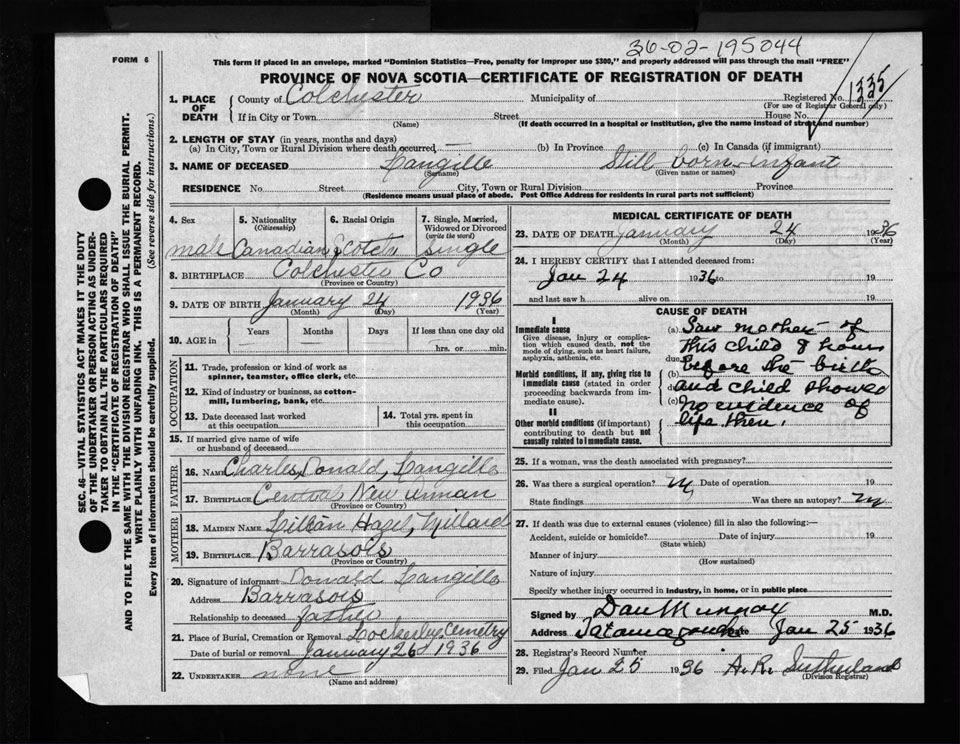 36-02-195044
FORM 6
This form if placed in an envelope, marked "Dominion Statistics—Free, penalty for improper use $300," and properly addressed will pass through the mail "FREE"
PROVINCE OF NOVA SCOTIA—CERTIFICATE OF REGISTRATION OF DEATH
1. PLACE OF DEATH { County of Colchester Municipality of Registered No. 1335
(For use of Registrar General only)
If in City or Town Street House No.
(Name) (If death occurred in a hospital or institution, give the name instead of street and number)
2. LENGTH OF STAY (in years, months and days)
(a) In City, Town or Rural Division where death occurred — (b) In Province (c) In Canada (if immigrant)
3. NAME OF DECEASED Langille Still born infant
(Surname) (Given name or names)
RESIDENCE No. Street City, Town or Rural Division Province
(Residence means usual place of abode. Post Office Address for residents in rural parts not sufficient)
4. Sex 5. Nationality (Citizenship) 6. Racial Origin 7. Single, Married, Widowed or Divorced (write the word)
male Canadian Scotch single
8. BIRTHPLACE Colchester Co
(Province or Country)
9. DATE OF BIRTH January 24 1936
(Month) (Day) (Year)
10. AGE in { Years Months Days If less than one day old
— — hrs. or min.
OCCUPATION
11. Trade, profession or kind of work as spinner, teamster, office clerk, etc.
12. Kind of industry or business, as cotton-mill, lumbering, bank, etc.
13. Date deceased last worked at this occupation
14. Total yrs. spent in this occupation
15. If married give name of wife or husband of deceased
FATHER
16. NAME Charles, Donald, Langille
17. BIRTHPLACE Central New Annan
(Province or Country)
MOTHER
18. MAIDEN NAME Lillian Hazel, Millard
19. BIRTHPLACE Barrasois
(Province or Country)
20. Signature of informant Donald Langille
Address Barrasois
Relationship to deceased father
21. Place of Burial, Cremation or Removal Lockerby Cemetry
Date of burial or removal January 26 1936
22. UNDERTAKER none
(Name and address)
MEDICAL CERTIFICATE OF DEATH
23. DATE OF DEATH January 24 1936
(Month) (Day) (Year)
24. I HEREBY CERTIFY that I attended deceased from:
Jan 24 1936 to 19
and last saw h alive on 19
CAUSE OF DEATH
I
Immediate cause
Give disease, injury or complication which caused death, not the mode of dying, such as heart failure, asphyxia, asthenia, etc.
Morbid conditions, if any, giving rise to immediate cause (stated in order proceeding backwards from immediate cause).
II
Other morbid conditions (if important) contributing to death but not causally related to immediate cause.
(a) Saw mother of
this child 8 hours
due before the birth
(b) and child showed
(c) no evidence of
life then.
25. If a woman, was the death associated with pregnancy?
26. Was there a surgical operation? Date of operation 19
State findings Was there an autopsy?
27. If death was due to external causes (violence) fill in also the following:—
Accident, suicide or homicide? Date of injury 19
(State which)
Manner of injury
(How sustained)
Nature of injury
Specify whether injury occurred in industry, in home, or in public place
Signed by Dan Murray M.D.
Address Tatamagouche Date Jan 25 1936
28. Registrar's Record Number
29. Filed Jan 25 1936 A.R. Sutherland
(Division Registrar)
SEC. 46—VITAL STATISTICS ACT MAKES IT THE DUTY
OF THE UNDERTAKER OR PERSON ACTING AS UNDER-
TAKER TO OBTAIN ALL THE PARTICULARS REQUIRED
IN THE "CERTIFICATE OF REGISTRATION OF DEATH"
AND TO FILE THE SAME WITH THE DIVISION REGISTRAR WHO SHALL ISSUE THE BURIAL PERMIT.
WRITE PLAINLY WITH UNFADING INK. THIS IS A PERMANENT RECORD.
Every item of information should be carefully supplied. (See reverse side for instructions.)